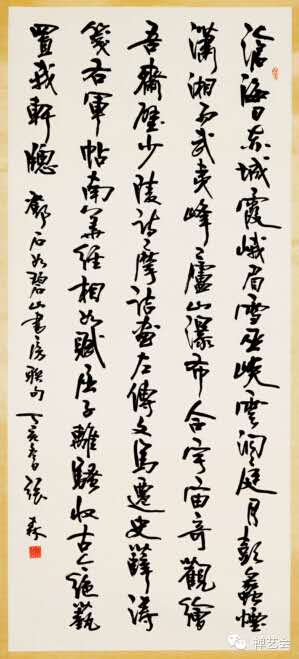 滄海日赤城霞峨眉雪巫峽雲洞庭月彭蠡煙
瀟湘雨武夷峰廬山瀑布合宇宙奇觀繪
吾齋壁少陵詩摩詰畫左傳文馬遷史薛濤
箋右軍帖南華經相如賦屈子離騷收古今絕藝
置我軒牕 鄧石如碧山書房聯句 丁亥春日 張森
禅艺会